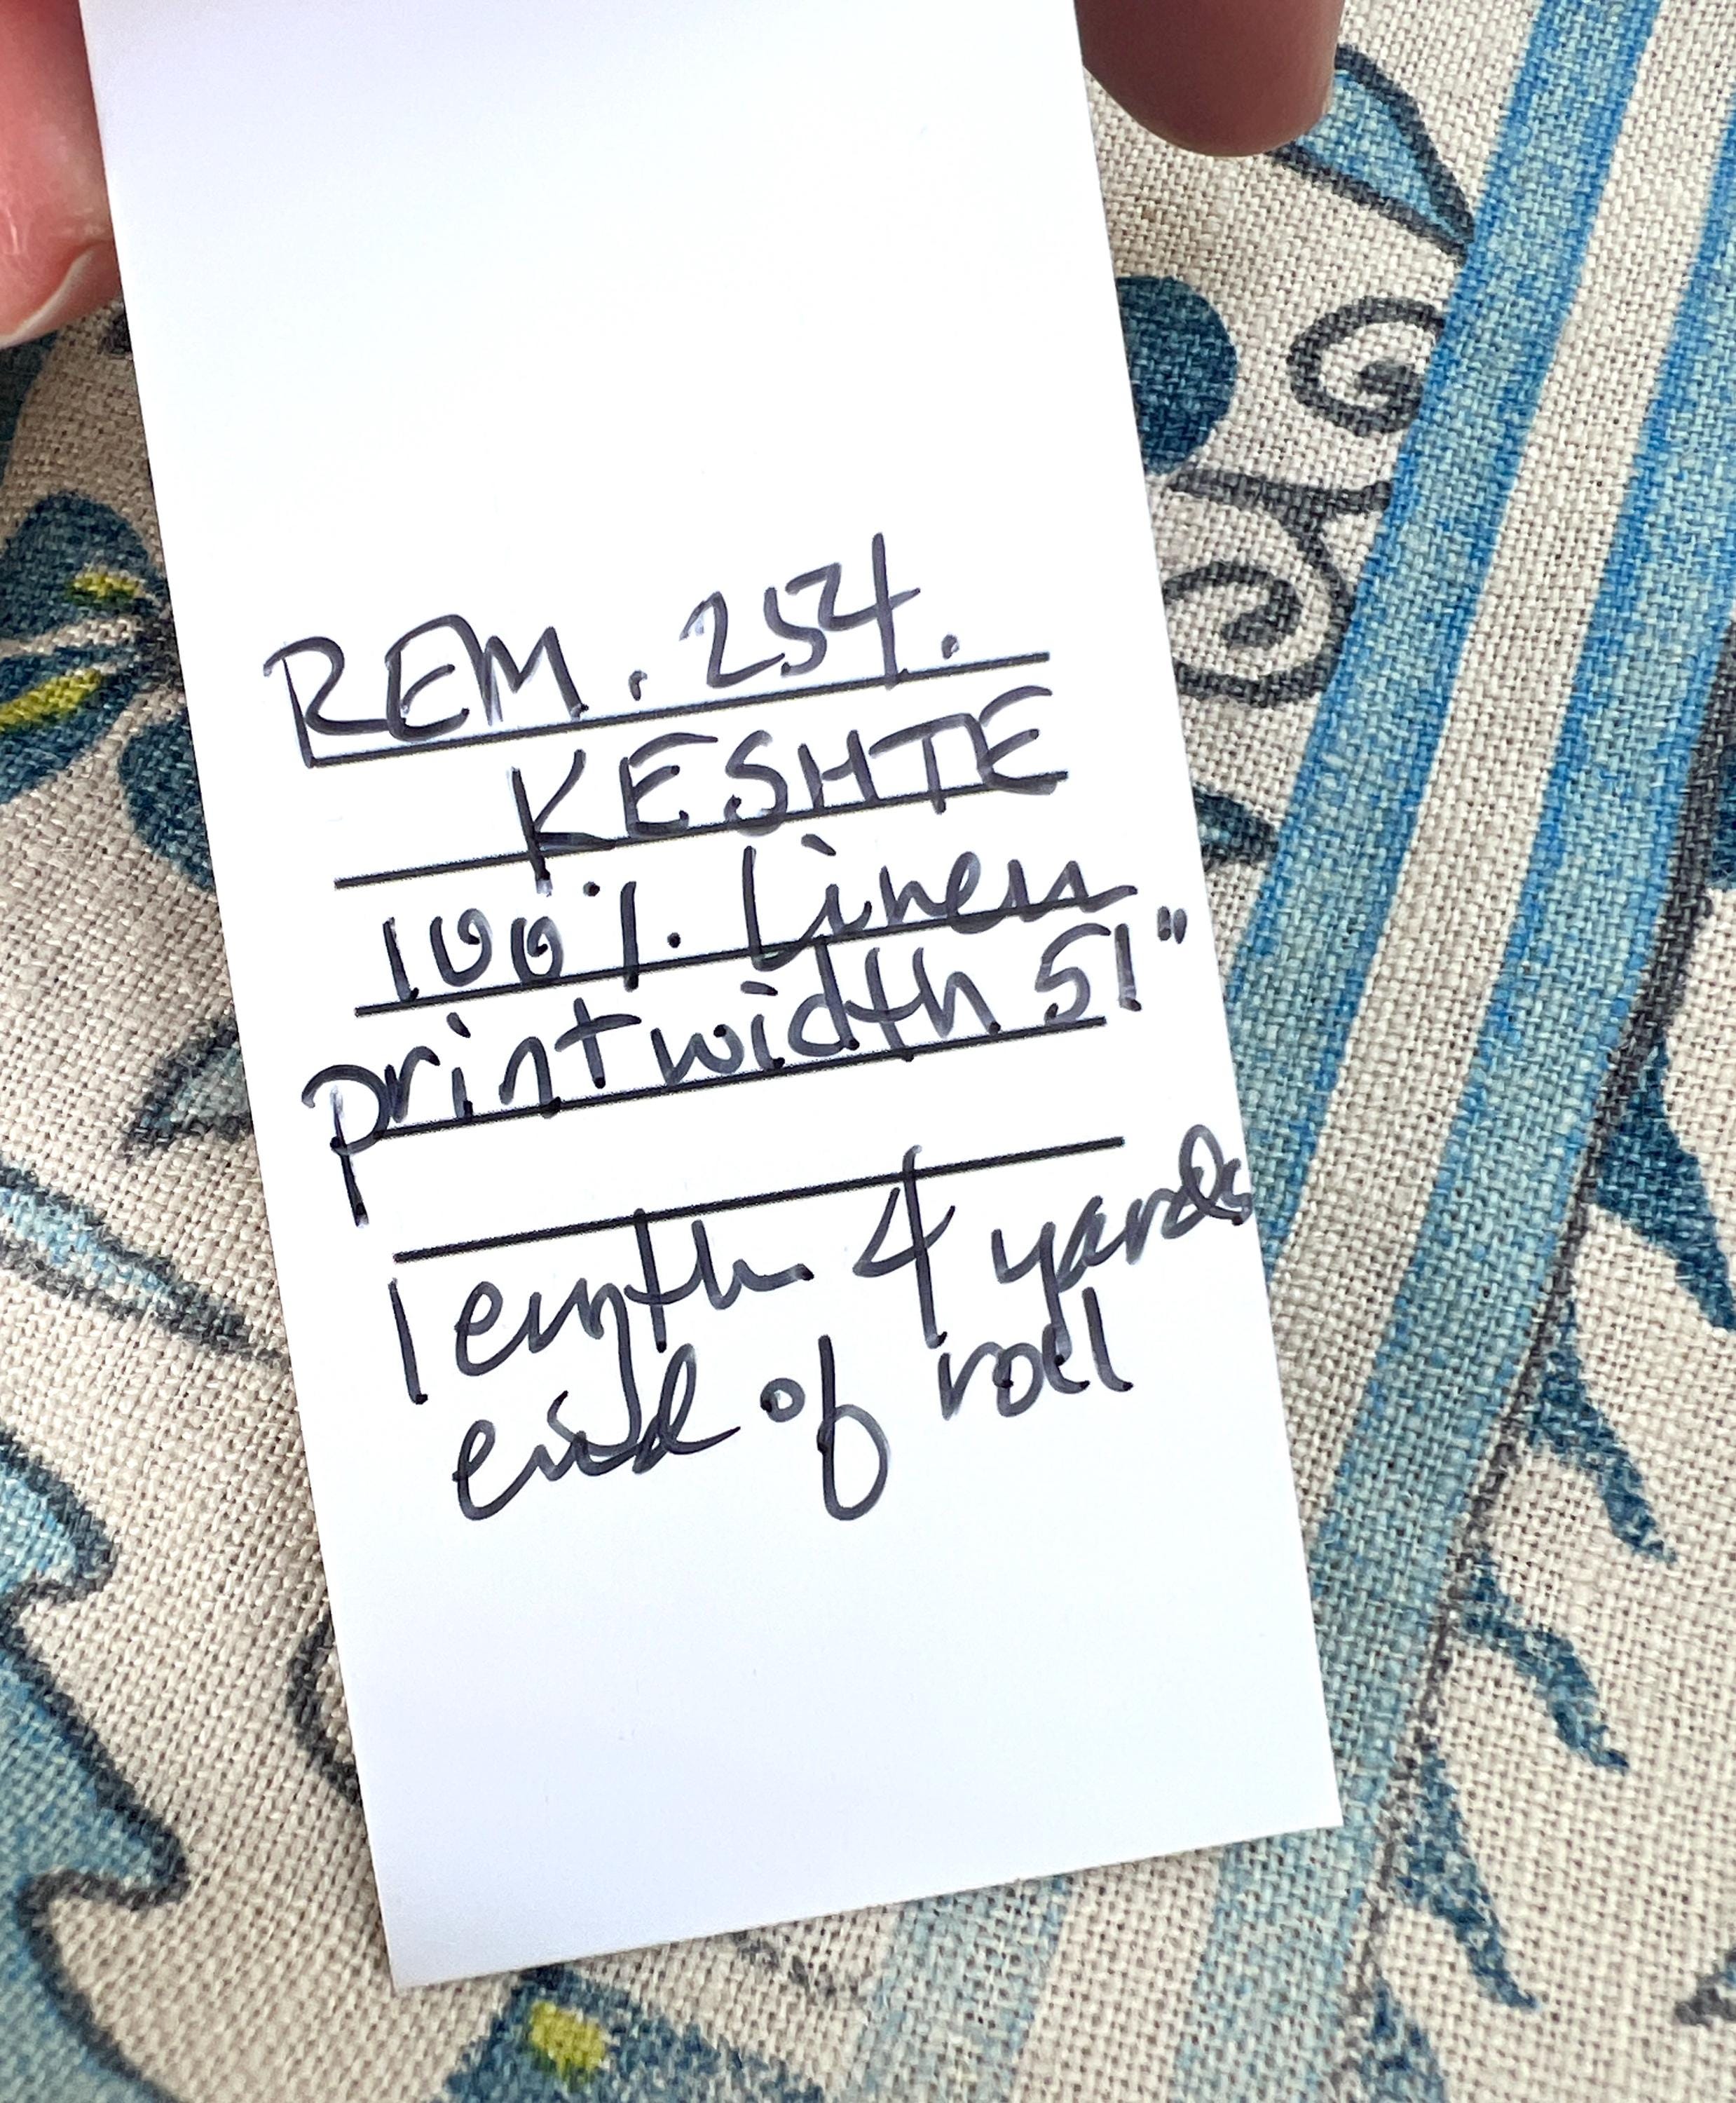 REM. 254.
KESHTE
100% Linen
print width 51"
length 4 yards
end of roll